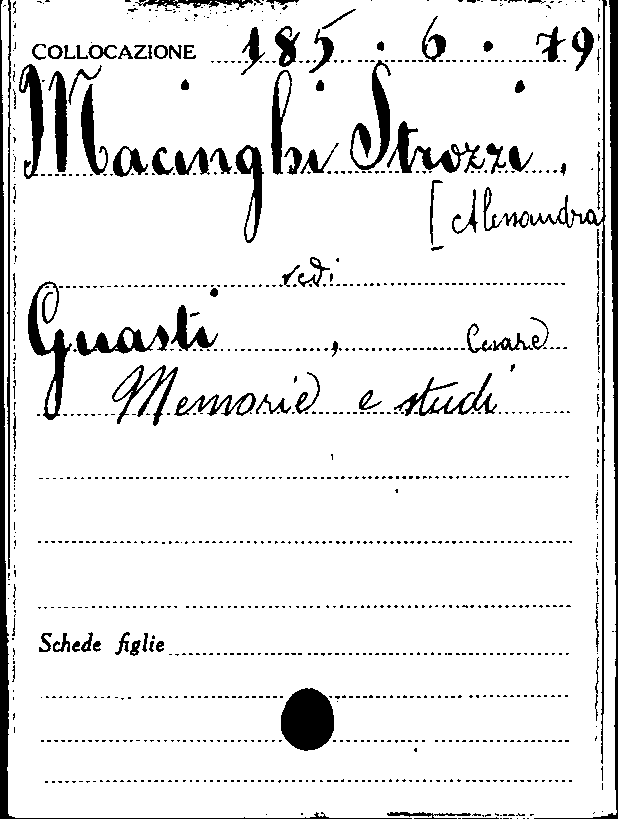 COLLOCAZIONE 185 . 6 . 79
Macinghi Strozzi,
[Alessandra
vedi
Guasti, Cesare
Memorie e studi
Schede figlie